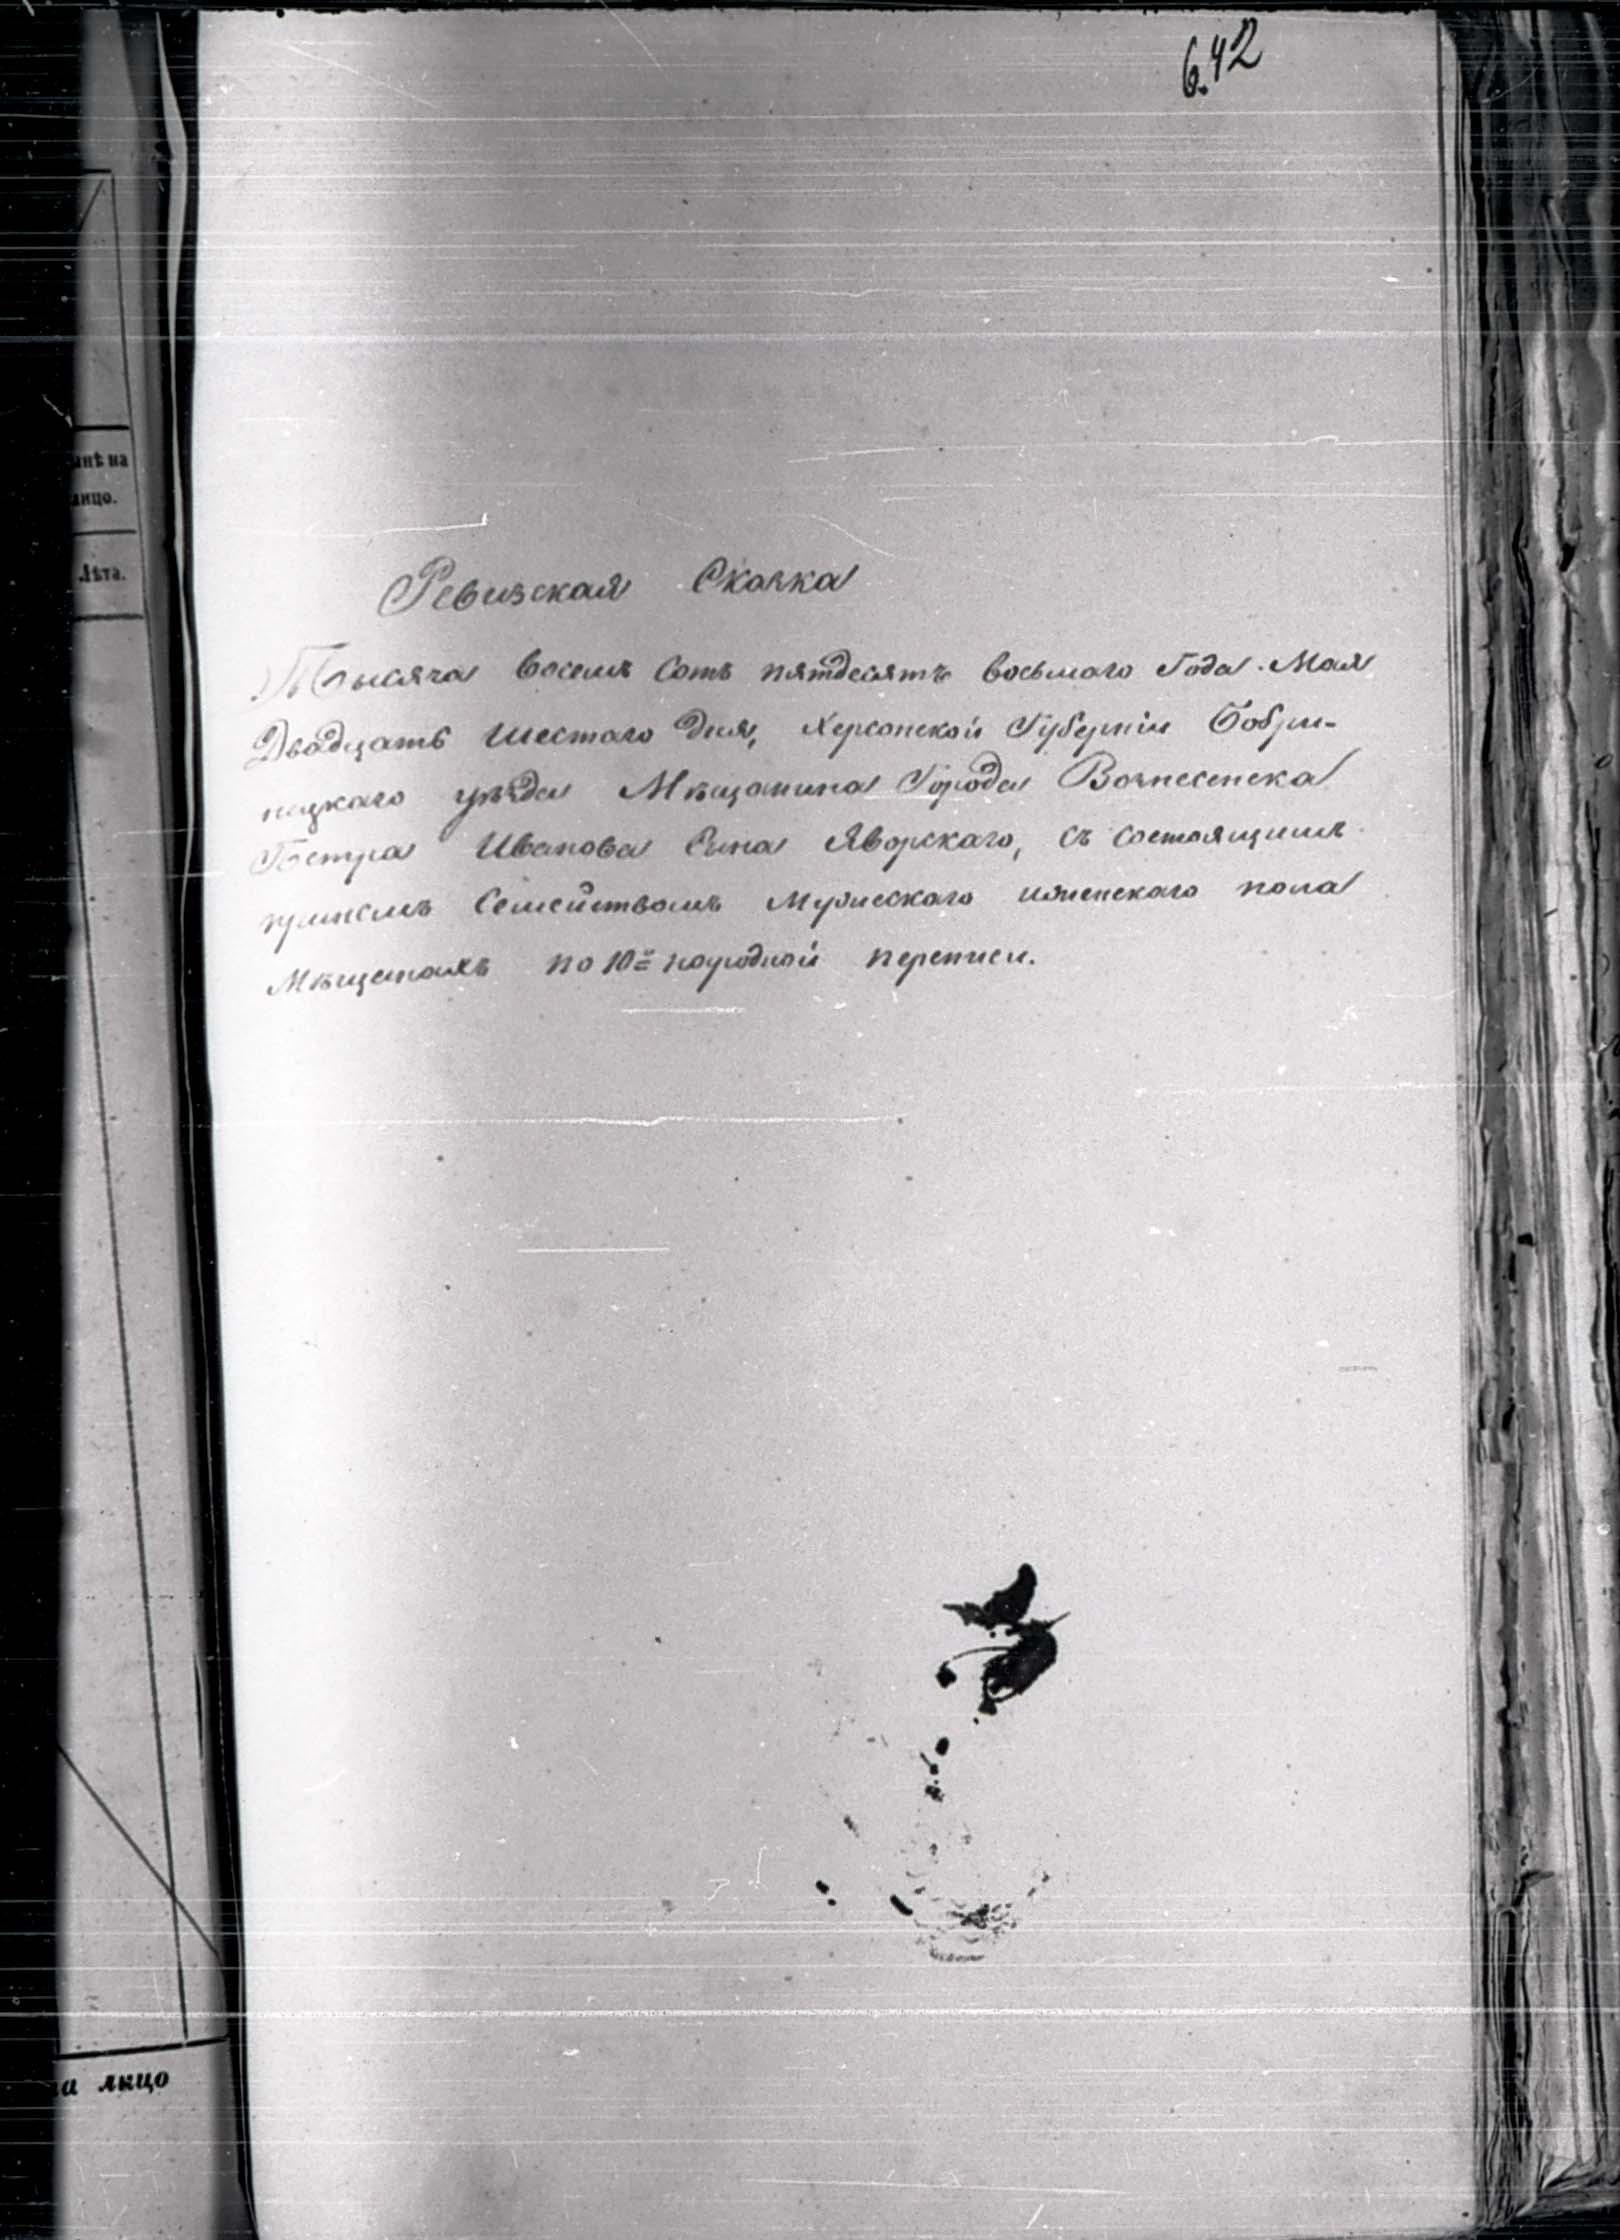 642
Ревизская Сказка
Тысяча восемь сотъ пятдесятъ восьмаго Года. Мая
Двадцать шестаго дня, Херсонской Губерніи Бобри-
нецкаго уѣзда Мѣщанина Города Вознесенска
Петра Иванова Сына Яворскаго, съ состоящимъ
принемъ Семействомъ Мужескаго иженскаго пола
Мѣщанахъ по 10й народной переписи.
инѣ на
лицо.
Лѣта.
на лицо